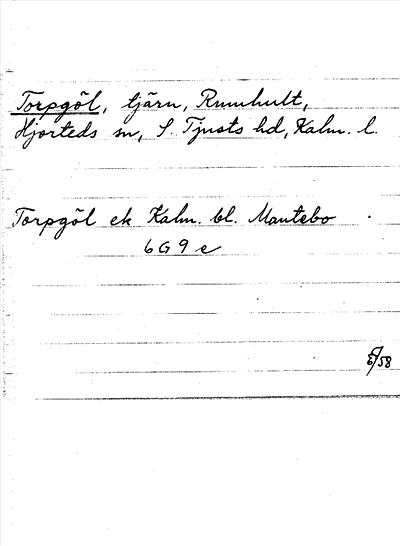 Torpgöl, tjärn, Rumhult,
Hjorteds sn, S. Tjusts hd, Kalm. l.
Torpgöl ek Kalm. bl. Mantebo
6G9e
/58